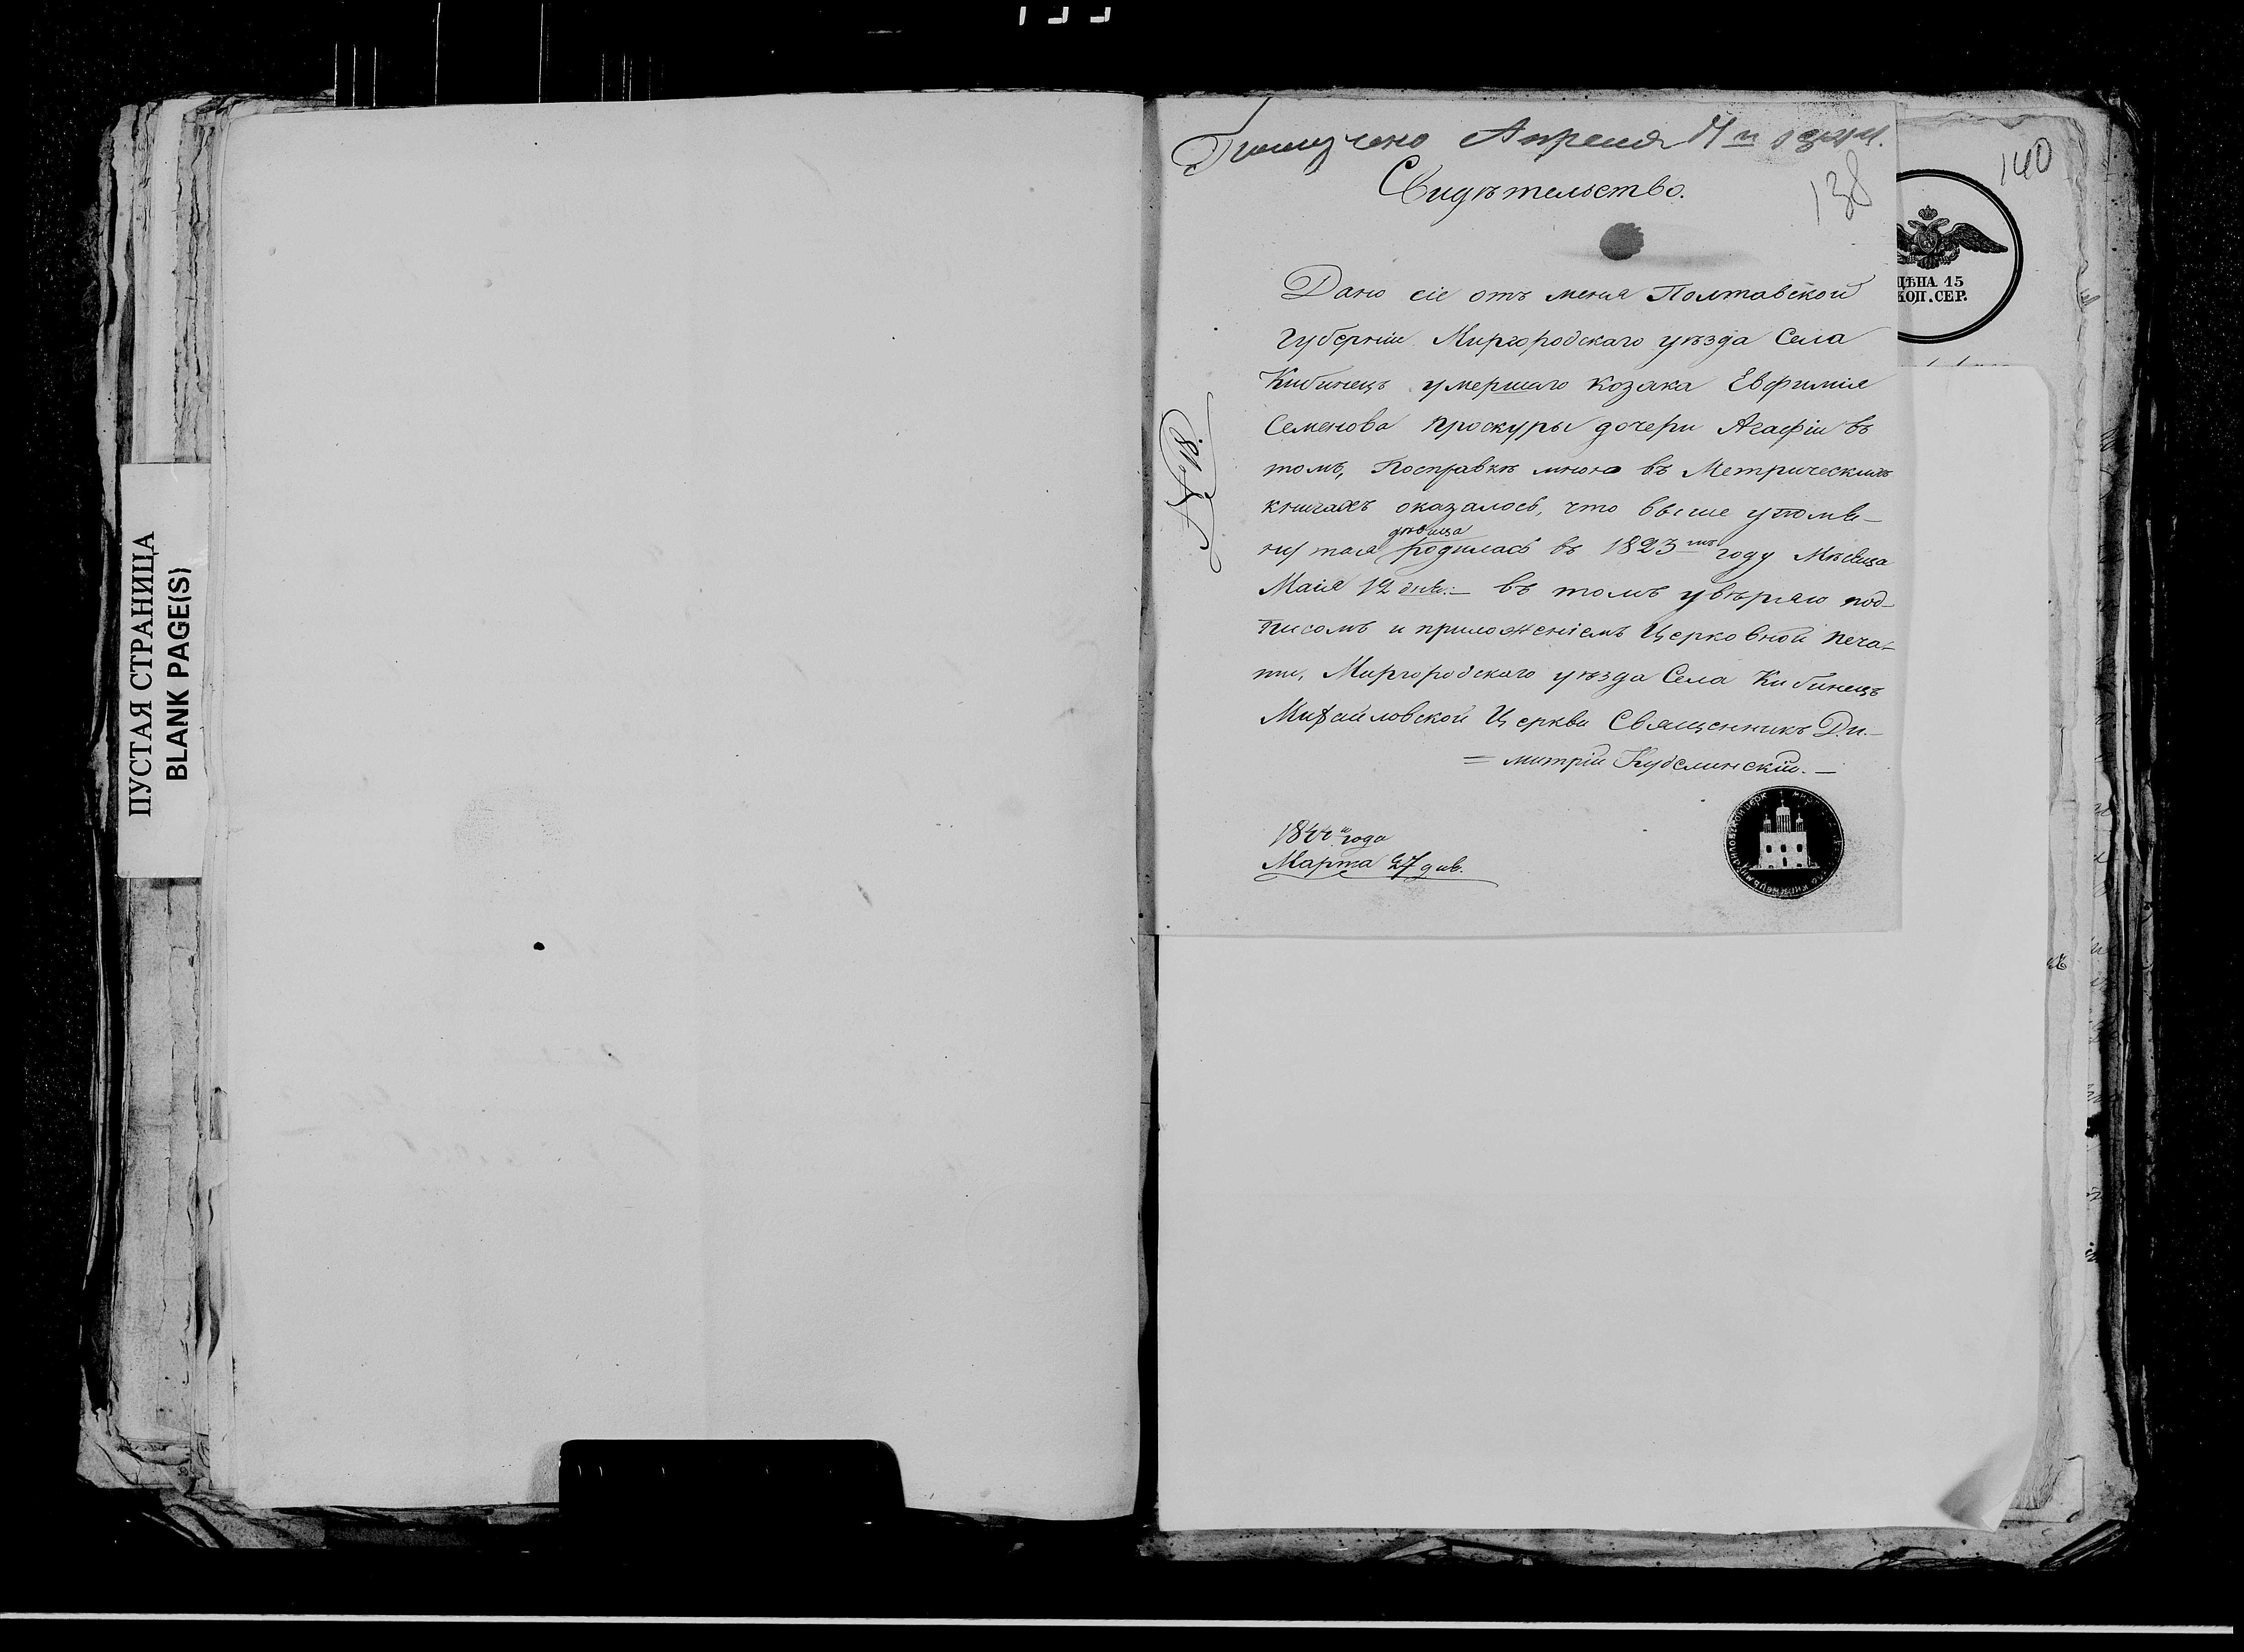 ПУСТАЯ СТРАНИЦА
BLANK PAGE(S)
Получено Апреля 11 1844.
Свидѣтельство.
138
140
ЦѢНА 15
КОП. СЕР.
Дано сіе отъ меня Полтавской
Губерніи Миргородскаго уѣзда Села
Кибинецъ умершаго козака Евфимія
Семенова Проскуры дочери Агафіи въ
томъ, Посправкѣ мною въ Метрическихъ
книгахъ оказалось, что выше упомя-
нутая дѣвица родилась въ 1823мъ году Мѣсяца
Маія 12 дня:– въ томъ увѣряю под-
писомъ и приложеніемъ Церковной печа-
ти, Миргородскаго уѣзда Села Кибинецъ
Михайловской Церкви Священникъ Ди-
= митрій Кубелинскій.–
1844 года
Марта 27 дня.